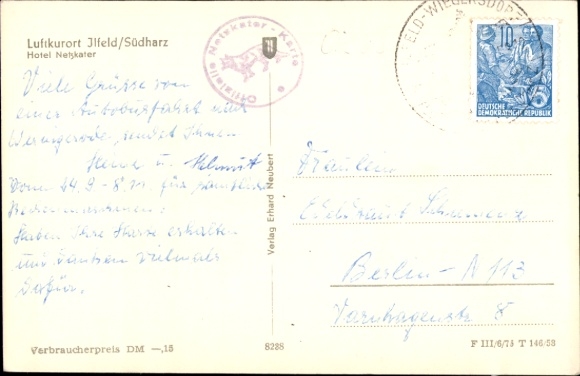 Luftkurort Ilfeld/Südharz
Hotel Netzkater
Viele Grüsse von
einer Autobusfahrt nach
Wernigerode, sendet Ihnen
u. Helmut
Vom 14.9 - 8
für
Haben Ihre Karte erhalten
und danken vielmals
dafür.
Verbraucherpreis DM —,15
Offizielle Netzkater-Karte
Verlag Erhard Neubert
8238
ELD-WIEGERSDORF
10
5
DEUTSCHE
DEMOKRATISCHE REPUBLIK
Fräulein
Berlin - N 113
Varnhagenstr 8
F III/6/75 T 146/58